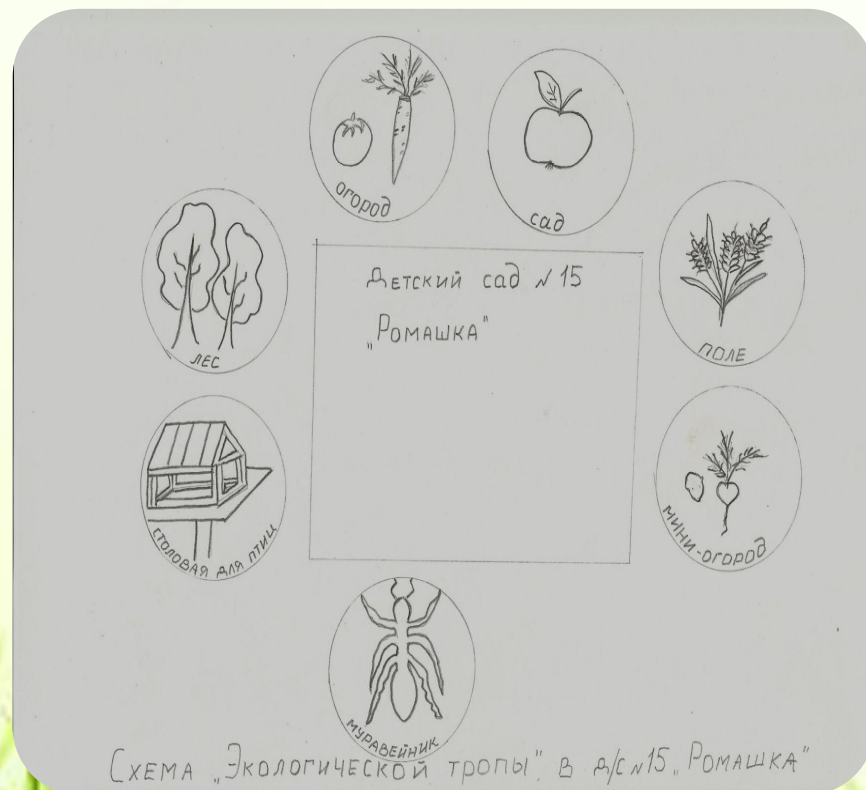 ОГОРОД
сад
ЛЕС
Детский сад №15
„Ромашка"
ПОЛЕ
СТОЛОВАЯ ДЛЯ ПТИЦ
МИНИ-ОГОРОД
МУРАВЕЙНИК
Схема „Экологической тропы" в д/с №15 „Ромашка"